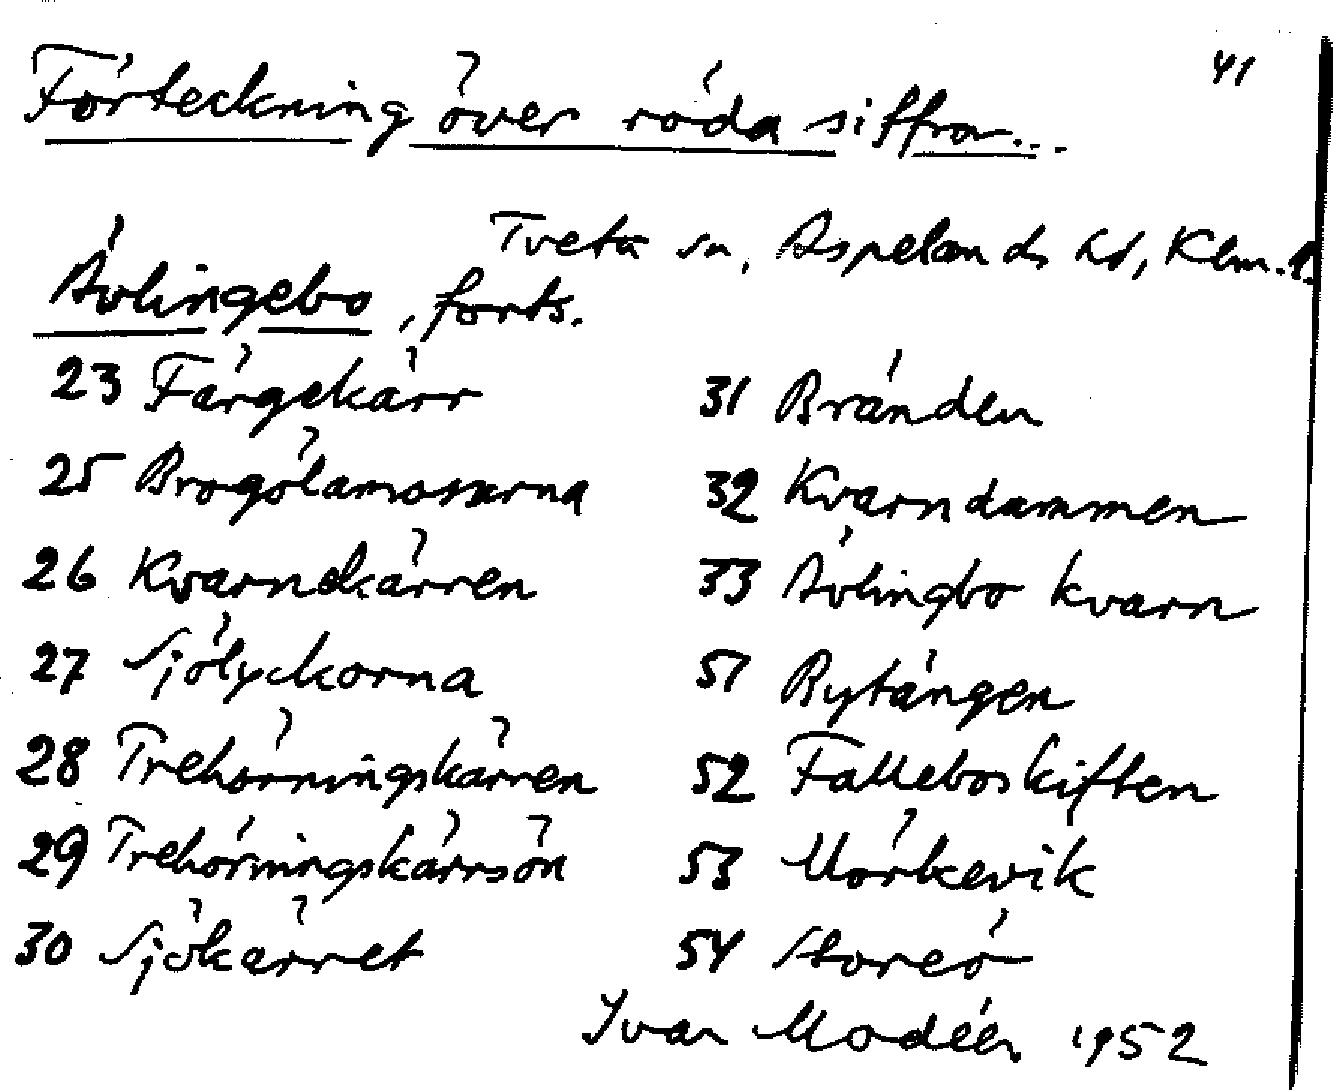 41
Förteckning över röda siffror...
Tveta sn, Aspelands hd, Klm.l.
Ävlingebo, forts.
23 Färgekärr
25 Brogölamossarna
26 Kvarnekärren
27 Sjölyckorna
28 Trehörningskärren
29 Trehörningskärrsön
30 Sjökärret
31 Bränden
32 Kvarndammen
33 Ävlingbo kvarn
51 Rytängen
52 Falleboskiften
53 Mörkevik
54 Storeö
Ivar Modéer 1952